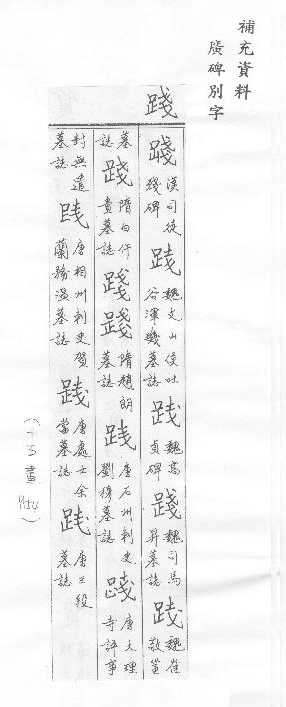 補充資料
廣碑別字
踐
踐 漢司徒殘碑 踐 魏文山侯吐谷渾璣墓誌 践 魏高貞碑 踐 魏司馬昇墓誌 践 魏崔敬邕
墓誌 踐 隋白仵貴墓誌 踐 踐 隋趙朗墓誌 践 唐石州刺史劉穆墓誌 踐 唐大理寺評事
封無遺墓誌 践 唐相州刺史賀蘭務溫墓誌 践 唐處士余當墓誌 践 唐王段墓誌
(十五畫 )